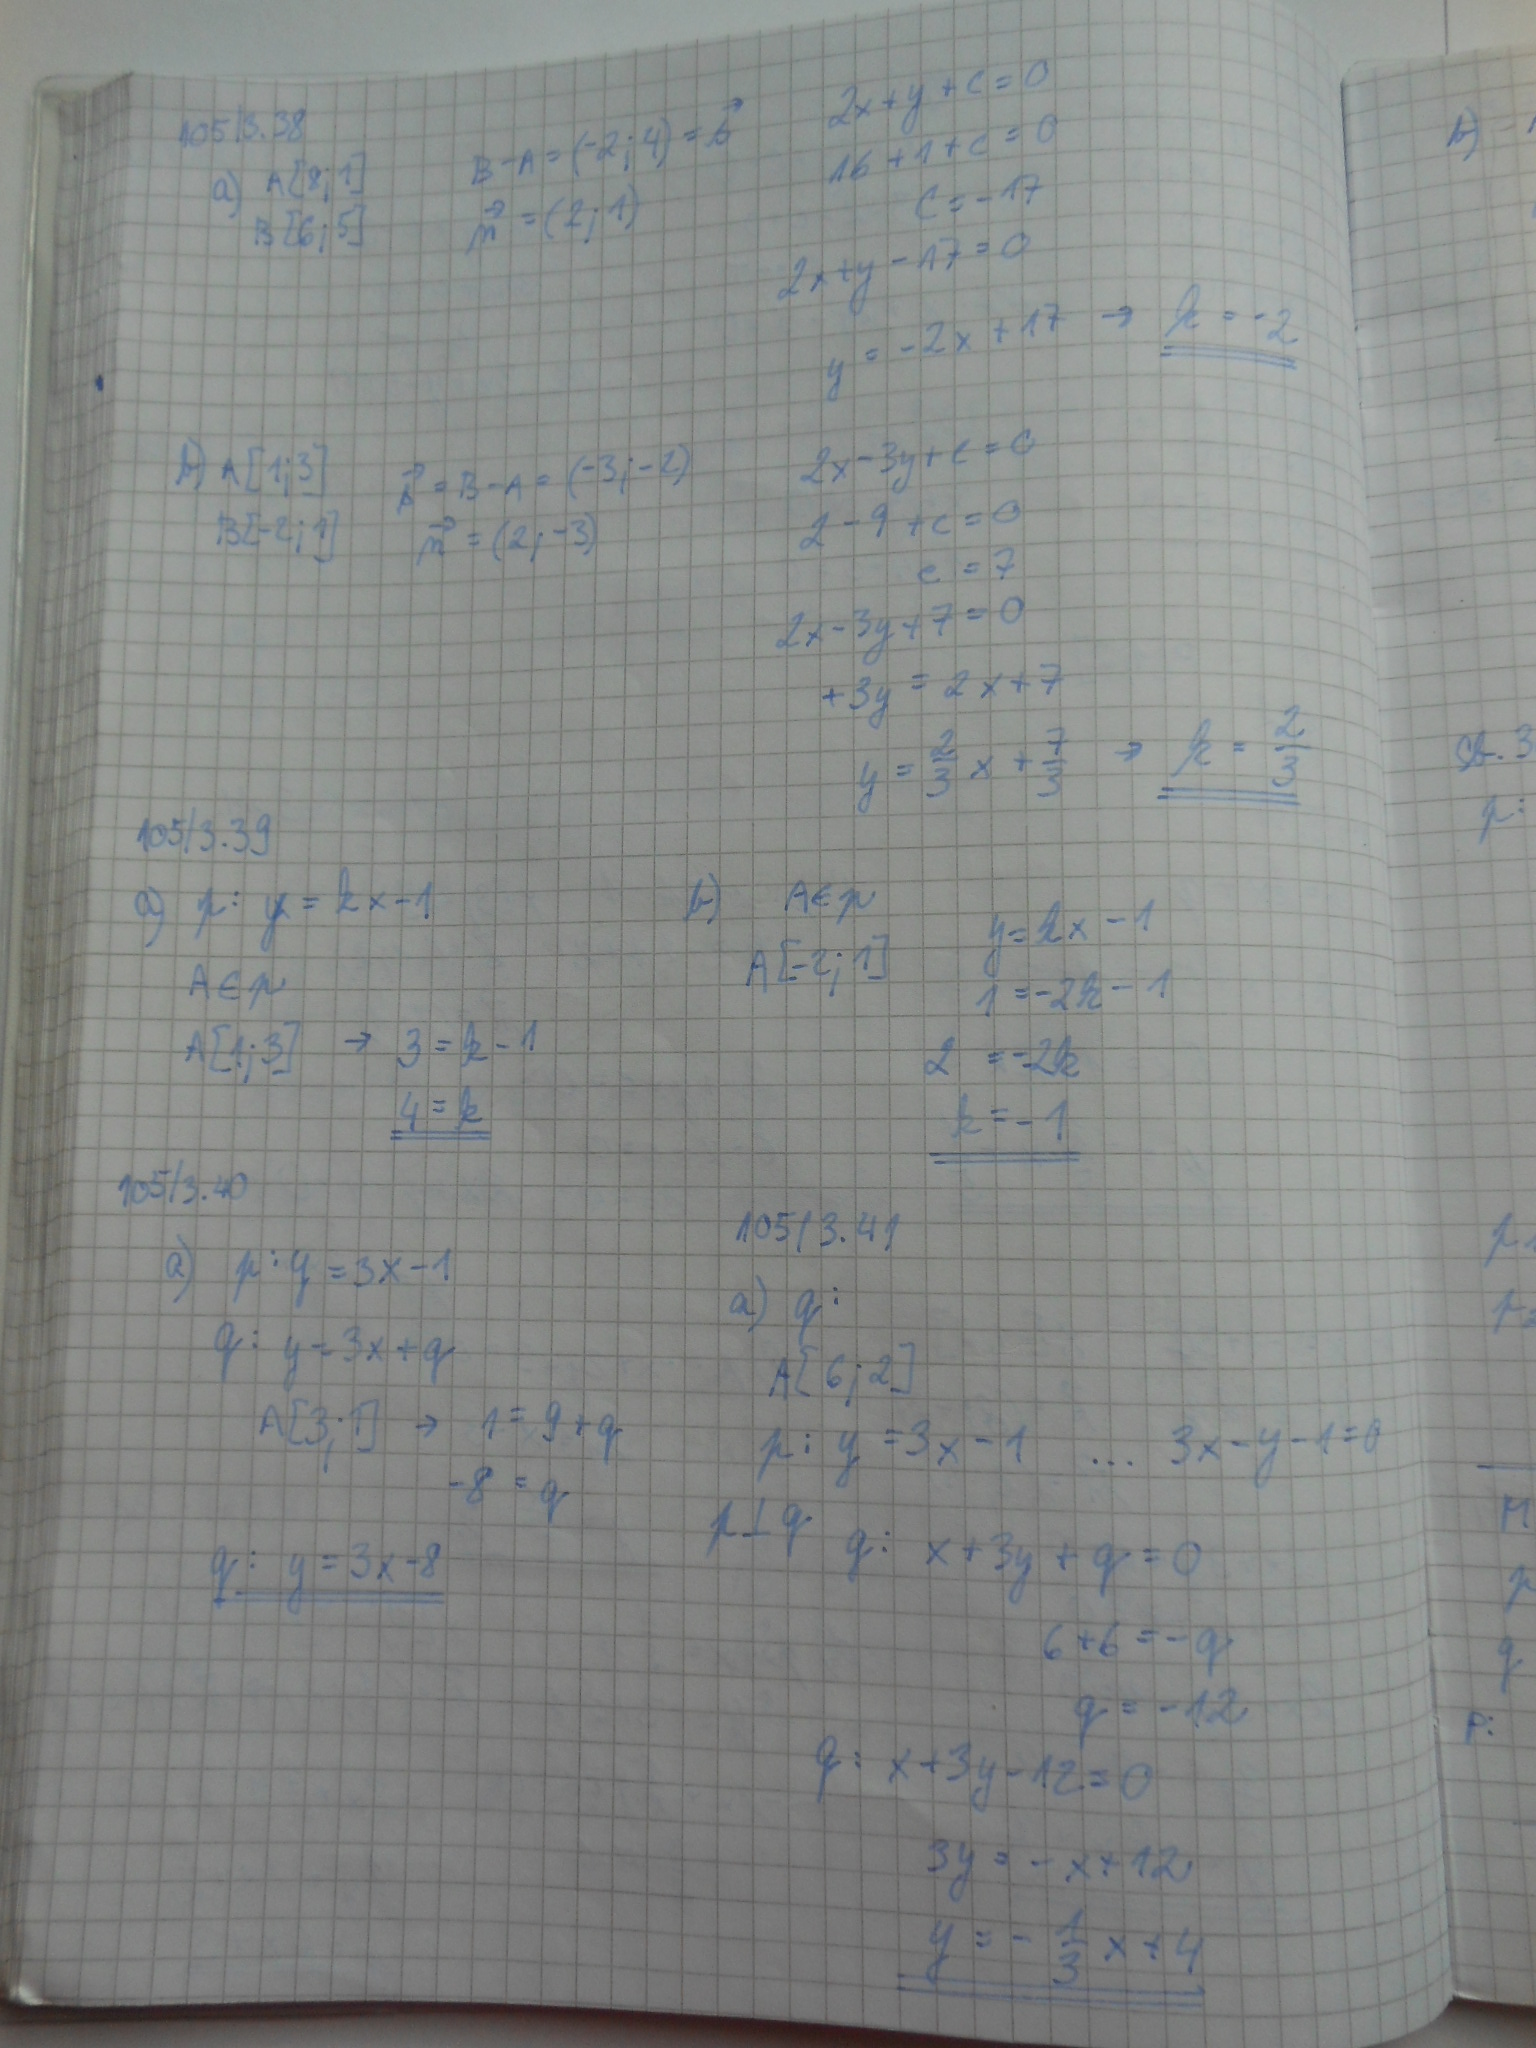 105/3.38
a) A[8;1]
B[6;5]
B-A = (-2;4) = b⃗
n⃗ = (2;1)
2x+y+c=0
16+1+c=0
c=-17
2x+y-17=0
y = -2x+17 → k = -2
b) A[1;3]
B[-2;1]
b⃗ = B-A = (-3;-2)
n⃗ = (2;-3)
2x-3y+c=0
2-9+c=0
c = 7
2x-3y+7=0
+3y = 2x+7
y = 2/3 x + 7/3 → k = 2/3
105/3.39
a) p: y = kx-1
A∈p
A[1;3] → 3 = k-1
4 = k
b) A∈p
A[-2;1]
y=kx-1
1=-2k-1
2 = -2k
k=-1
105/3.40
a) p: y = 3x-1
q: y = 3x+q
A[3;1] → 1 = 9+q
-8 = q
q: y = 3x-8
105/3.41
a) q:
A[6;2]
p: y = 3x-1 ... 3x-y-1=0
p⊥q q: x+3y+q=0
6+6=-q
q = -12
q: x+3y-12=0
3y = -x+12
y = - 1/3 x+4
b)
p:
P: